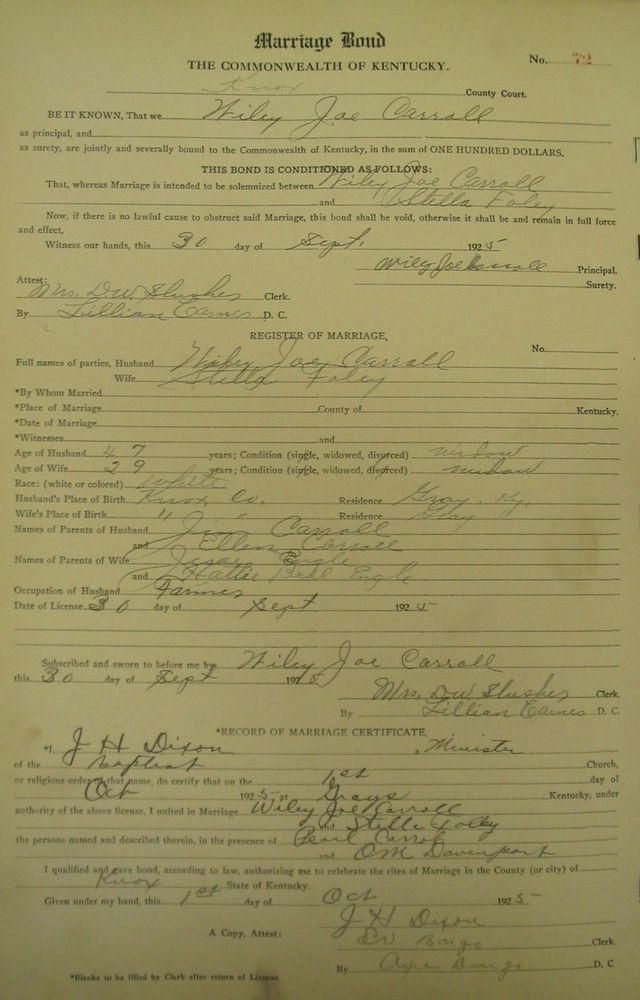 Marriage Bond
THE COMMONWEALTH OF KENTUCKY. No. 72
Knox County Court.
BE IT KNOWN, That we Wiley Joe Carroll
as principal, and
as surety, are jointly and severally bound to the Commonwealth of Kentucky, in the sum of ONE HUNDRED DOLLARS.
THIS BOND IS CONDITIONED AS FOLLOWS:
That, whereas Marriage is intended to be solemnized between Wiley Joe Carroll
and Stella Foley
Now, if there is no lawful cause to obstruct said Marriage, this bond shall be void, otherwise it shall be and remain in full force
and effect,
Witness our hands, this 30 day of Sept. 1925
Wiley Joe Carroll Principal.
Surety.
Attest:
Mrs. D.W. Slusher Clerk.
By Lillian Eames D. C.
REGISTER OF MARRIAGE,
No.
Full names of parties, Husband Wiley Joe Carroll
Wife Stella Foley
*By Whom Married
*Place of Marriage County of Kentucky.
*Date of Marriage
*Witnesses and
Age of Husband 47 years; Condition (single, widowed, divorced) widow
Age of Wife 29 years; Condition (single, widowed, divorced) widow
Race: (white or colored) White
Husband's Place of Birth Knox Co. Residence Gray, Ky.
Wife's Place of Birth " " Residence Gray
Names of Parents of Husband Jim Carroll
and Ellen Carroll
Names of Parents of Wife Engle
and Bell Engle
Occupation of Husband Farmer
Date of License 30 day of Sept 1925
Subscribed and sworn to before me by Wiley Joe Carroll
this 30 day of Sept 1925
Mrs. D.W. Slusher Clerk,
By Lillian Eames D. C.
*RECORD OF MARRIAGE CERTIFICATE,
*I, J H Dixon, Minister
of the Baptist Church,
or religious order of that name, do certify that on the 1st day of
Oct 1925 at Grays Kentucky, under
authority of the above license, I united in Marriage Wiley Joe Carroll
and Stella Folley
the persons named and described therein, in the presence of Pearl
and OM Davenport
I qualified and gave bond, according to law, authorizing me to celebrate the rites of Marriage in the County (or city) of
Knox State of Kentucky.
Given under my hand, this 1st day of Oct 1925
J H Dixon
A Copy, Attest: Bargo Clerk
By D. C
*Blanks to be filled by Clerk after return of License